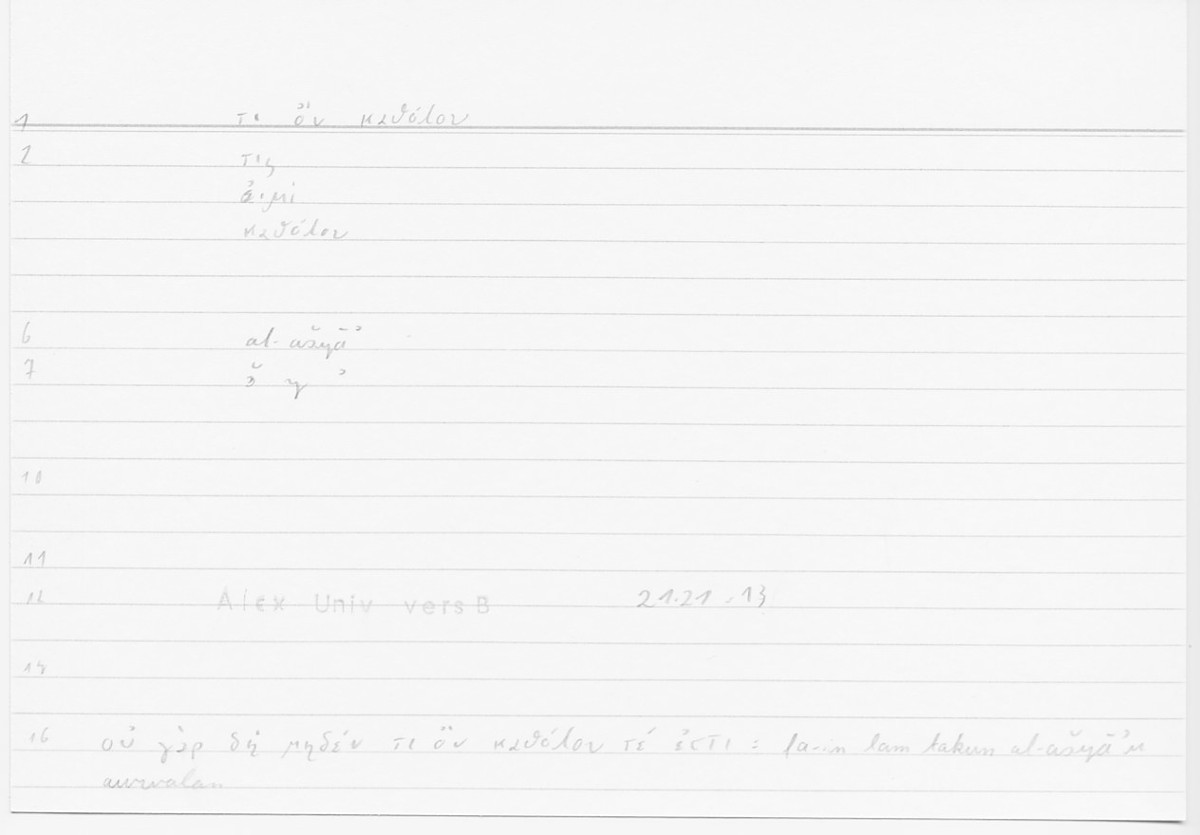 1 τι ὄν καθόλου
2 τις
εἰμί
καθόλου
6 al-ašyāʾ
7 š y ʾ
10
11
12 Alex Univ vers B 21.21 .13
14
16 οὐ γὰρ δὴ μηδέν τι ὄν καθόλου τέ ἐστι : fa-in lam takun al-ašyāʾu
awwalan